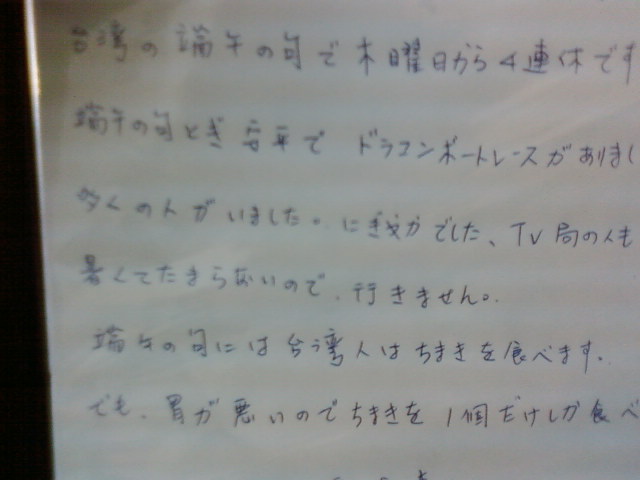 台湾の端午の句で木曜日から4連休です
端午の句とぎ安平でドラゴンボートレースがありまし
多くの人がいました。にぎやかでした、TV局の人も
暑くてたまらないので、行きません。
端午の句には台湾人はちまきを食べます.
でも、胃が悪いのでちまきを1個だけしか食べ